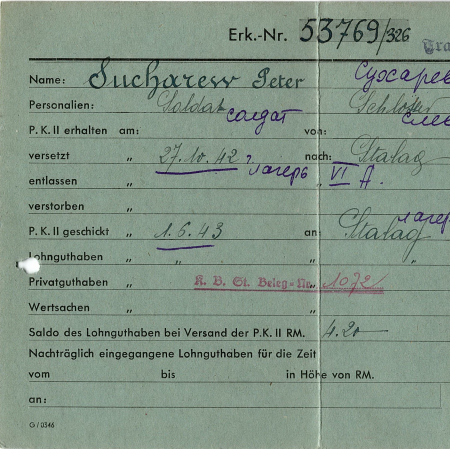 Erk.-Nr. 53769/326
Name: Sucharew Peter Сухарев
Personalien: Soldat солдат Schlosser слес
P. K. II erhalten am: von:
versetzt „ 27.10.42 nach: Stalag
entlassen „ лагерь „ VI A.
verstorben „
P. K. II geschickt „ 1.6.43 an: Stalag лагер
Lohnguthaben „ „ „
Privatguthaben „ K. B. St. Beleg-Nr. 1072
Wertsachen „ „
Saldo des Lohnguthaben bei Versand der P. K. II RM. 4.20
Nachträglich eingegangene Lohnguthaben für die Zeit
vom bis in Höhe von RM.
an:
G/0346